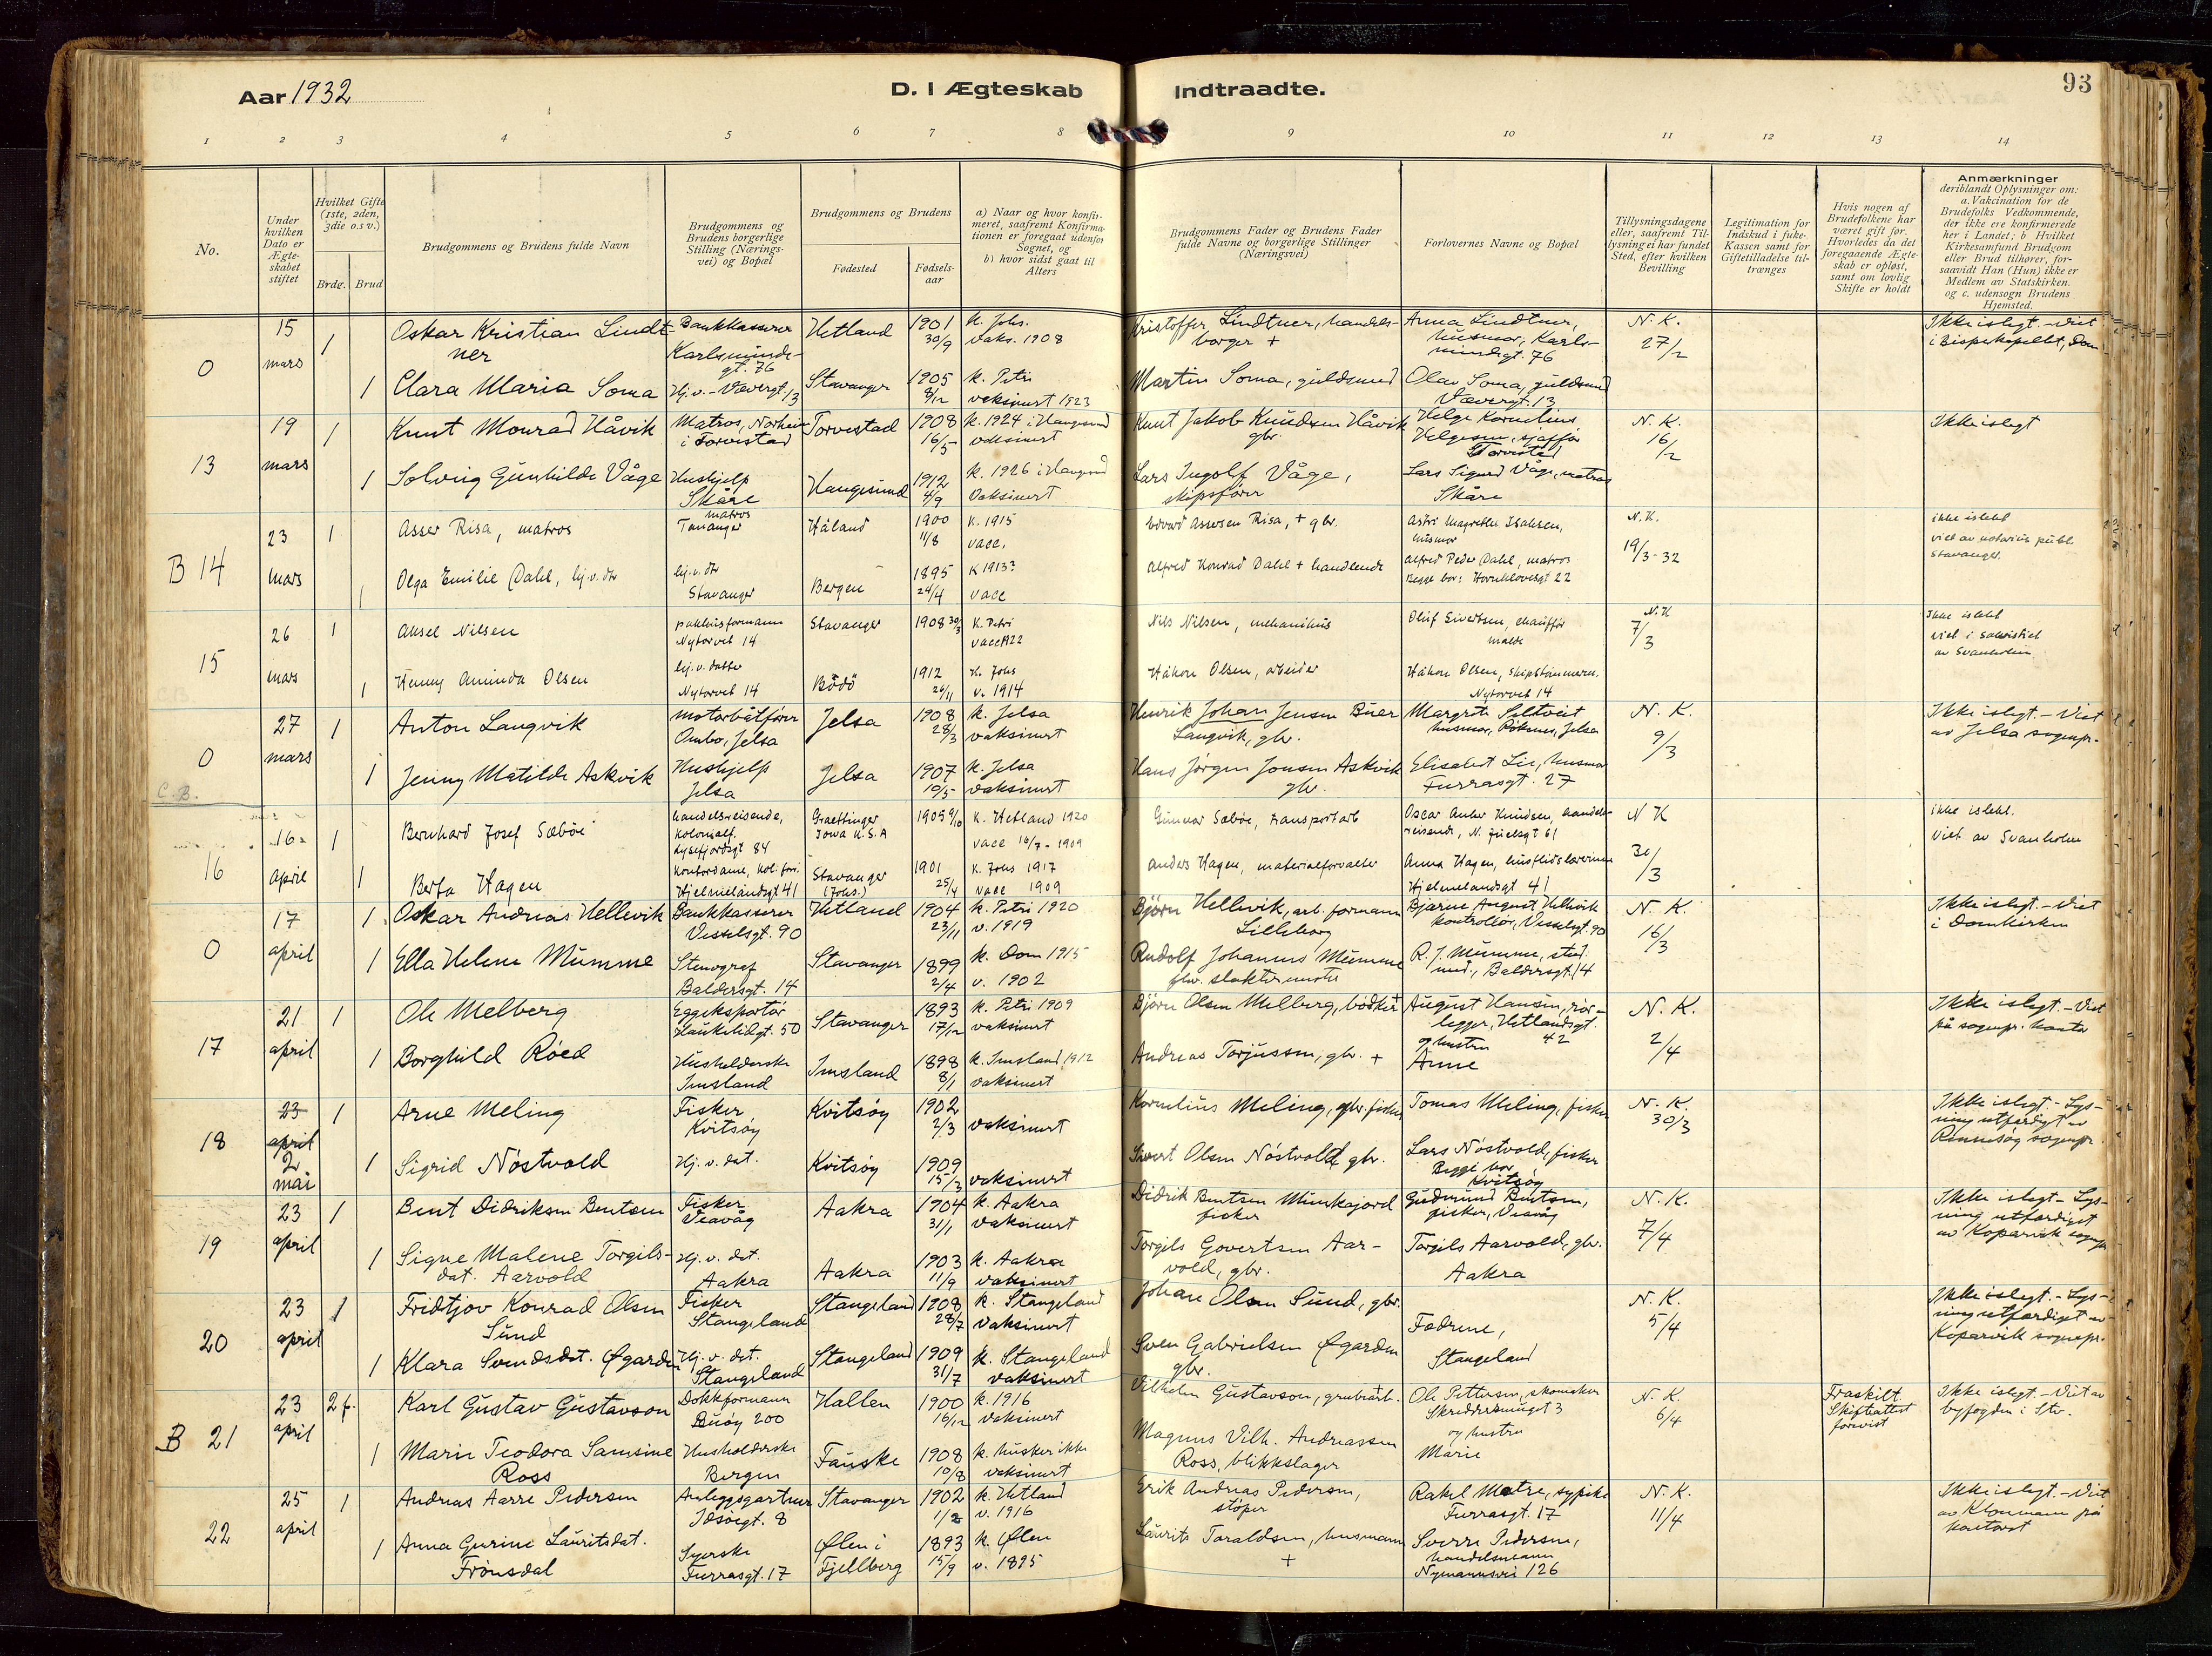 Aar 1932
D. I Ægteskab Indtraadte.
93
1 2 3 4 5 6 7 8 9 10 11 12 13 14
No.
Under hvilken Dato er Ægteskabet stiftet
Hvilket Gifte (1ste, 2den, 3die o.s.v.)
Brdg. Brud
Brudgommens og Brudens fulde Navn
Brudgommens og Brudens borgerlige Stilling (Næringsvei) og Bopæl
Brudgommens og Brudens
Fødested
Fødselsaar
a) Naar og hvor konfirmeret, saafremt Konfirmationen er foregaat udenfor Sognet, og b) hvor sidst gaat til Alters
Brudgommens Fader og Brudens Fader fulde Navne og borgerlige Stillinger (Næringsvei)
Forlovernes Navne og Bopæl
Tillysningsdagene eller, saafremt Tillysning ei har fundet Sted, efter hvilken Bevilling
Legitimation for Indskud i Enke-Kassen samt for Giftetilladelse tiltrænges
Hvis nogen af Brudefolkene har været gift før. Hvorledes da det foregaaende Ægteskab er opløst, samt om lovlig Skifte er holdt
Anmærkninger deriblandt Oplysninger om: a. Vakcination for de Brudefolks Vedkommende, der ikke ere konfirmerede her i Landet; b Hvilket Kirkesamfund Brudgom eller Brud tilhører, forsaavidt Han (Hun) ikke er Medlem av Statskirken. og c. udensogn Brudens Hjemsted.
0 15 mars 1 Oskar Kristian Lindtner Bankkasserer Karlsminde-gt. 76 Hetland 1901 30/9 k. Johs. vaks. 1908 Kristoffer Lindtner, handelsborger + Anna Lindtner, husmor, Karlsmindegt. 76 N. K. 27/2 Ikke islegt. - Viet i Bispekapellet, Dom
1 Clara Maria Soma Hj.v. - Vævergt. 13 Stavanger 1905 8/12 k. Petri vaksinert 1923 Martin Soma, guldsmed Olav Soma, guldsmed Vævergt. 13
13 19 mars 1 Knut Monrad Håvik Matros, Norheim i Torvestad Torvestad 1908 16/5 k. 1924 i Haugesund vaksinert Knut Jakob Knudsen Håvik gbr. Helge Kornelius Helgesen, sjaffør Torvestad N. K. 16/2 Ikke islegt
1 Solveig Gunhilde Våge Hushjelp Skåre Haugesund 1912 4/9 k. 1926 i Haugesund Vaksinert Lars Ingolf Våge, skipsfører Lars Sigurd Våge, matros Skåre
B 14 23 mars 1 Asser Risa, matros matros Tananger Håland 1900 11/8 K. 1915 vacc. Edvard Assersen Risa, + gbr. Astri Magrethe Isaksen, husmor N.K. 19/3-32 ikke islekt viet av notarius publ Stavanger.
1 Olga Emilie Dahl, hj.v. dtr hj.v. dtr Stavanger Bergen 1895 24/4 K 1913? vacc Alfred Konrad Dahl + handlende Alfred Peder Dahl, matros Begge bor: Hornklovesgt 22
15 26 mars 1 Aksel Nilsen pakhusformann Nytorvet 14 Stavanger 1908 30/3 K. Petri vacc 1922 Nils Nilsen, mekanikus Oluf Sivertsen, chauffør Malde N.K 7/3 Ikke islekt viet i Sakristiet av Svanholm
1 Henny Aminda Olsen hj.v. datter Nytorvet 14 Bodö 1912 26/11 K. Johs v. 1914 Håkon Olsen, arbeider Håkon Olsen, skipstømmerm. Nytorvet 14
0 27 mars 1 Anton Langvik motorbåtfører Ombo, Jelsa Jelsa 1908 28/3 k. Jelsa vaksinert Henrik Johan Jensen Buer Langvik, gbr. Margrete Seltveit husmor, Jelsa N. K. 9/3 Ikke islegt. - Viet av Jelsa sognepr.
C.B.
1 Jenny Matilde Askvik Hushjelp Jelsa Jelsa 1907 10/5 k. Jelsa vaksinert Hans Jørgen Jonsen Askvik gbr. Elisabet Lie, husmor Furrasgt. 27
16 16. april 1 Bernhard Josef Sæböe handelsreisende, kolonialf. Lysefjordsgt 84 Graettinger Iowa U.S.A 1905 9/10 K. Hetland 1920 vacc 16/7 - 1909 Gunnar Sæböe, transportarb Oscar Anker Knudsen, handelsreisende, N. Juelsgt 61 N K 30/3 ikke islekt. Viet av Svanholm
1 Berta Hagen kontordame, kol. forr. Hjelmelandsgt 41 Stavanger (Johs.) 1901 25/4 K. Johs 1917 vacc 1909 Anders Hagen, materialforvalter Anna Hagen, husflidslærerinne Hjelmelandsgt 41
0 17 april 1 Oskar Andreas Hellevik Bankkasserer Vesselsgt. 90 Hetland 1904 23/11 k. Petri 1920 v. 1919 Björn Hellevik, arb. formann Lilleborg Bjarne August Hellevik kontrollør, Vesselsgt. 90 N. K. 16/3 Ikke islegt. - Viet i Domkirken
1 Ella Helene Mumme Stenograf Baldersgt. 14 Stavanger 1899 2/4 k. Dom 1915 v. 1902 Rudolf Johannes Mumme fhv. slaktermester R. J. Mumme, stud. med., Baldersgt. 14
17 21 april 1 Ole Melberg Eggeksportør Haukeligt. 50 Stavanger 1893 17/12 k. Petri 1909 vaksinert Björn Olsen Melberg, bødker August Hansen, rørlegger, Hetlandsgt. 42 og hustru Anne N. K. 2/4 Ikke islegt. - Viet på sognepr. kontor
1 Borghild Röed Husholderske Imsland Imsland 1898 8/1 k. Imsland 1912 vaksinert Andreas Torjussen, gbr. +
18 23 april 2 mai 1 Arne Meling Fisker, Kvitsøy Kvitsøy 1902 2/3 vaksinert Kornelius Meling, gbr. fisker Tomas Meling, fisker N. K. 30/3 Ikke islegt. - Lysning utferdiget av Rennesøy sognepr.
1 Sigrid Nöstvold Hj. v. dat. Kvitsøy 1909 15/3 vaksinert Sivert Olsen Nöstvold, gbr. Lars Nöstvold, fisker Begge bor Kvitsøy
19 23 april 1 Bent Didriksen Bentsen Fisker Veavåg Aakra 1904 31/1 k. Aakra vaksinert Didrik Bentsen Munkajord fisker Gudmund Bentsen, fisker, Veavåg N. K. 7/4 Ikke islegt - Lysning utferdiget av Kopervik sognepr
1 Signe Malene Torgilsdat. Aarvold Hj. v. dat. Aakra Aakra 1903 11/9 k. Aakra vaksinert Torgils Govertsen Aarvold, gbr. Torgils Aarvold, gbr. Aakra
20 23 april 1 Fridtjov Konrad Olsen Sund Fisker Stangeland Stangeland 1908 28/7 k. Stangeland vaksinert Johan Olsen Sund, gbr. Fedrene, Stangeland N. K. 5/4 Ikke islegt. - Lysning utferdiget av Kopervik sognepr.
1 Klara Svendsdat. Øgarden Hj. v. dat. Stangeland Stangeland 1909 31/7 k. Stangeland vaksinert Sven Gabrielsen Øgarden gbr.
B 21 23 april 2 f. Karl Gustav Gustavson Dokkformann Buøy 200 Hallen 1900 16/12 k. 1916 vaksinert Vilhelm Gustavson, grubearb. Ole Pettersen, skomaker Skreddersmuget 3 og hustru Marie N. K. 6/4 Fraskilt. Skifteattest forevist Ikke islegt. - Viet av byfogden i Stv.
1 Marie Teodora Samsine Ross Husholderske Bergen Fauske 1908 10/8 k. husker ikke vaksinert Magnus Vilh. Andreassen Ross, blikkslager
22 25 april 1 Andreas Aarre Pedersen Anleggsgartner Idsøegt. 8 Stavanger 1902 1/2 k. Hetland v. 1916 Erik Andreas Pedersen, støper Rakel Matre, sypike Furrasgt. 17 N. K. 11/4 Ikke islegt. - Viet av Kloumann på kontoret
1 Anna Gurine Lauritsdat. Frönsdal Syerske Furrasgt. 17 Ølen i Fjellberg 1893 15/9 k. Ølen v. 1895 Laurits Toraldsen, husmann + Sverre Pedersen, handelsmann Nymannsvei 126